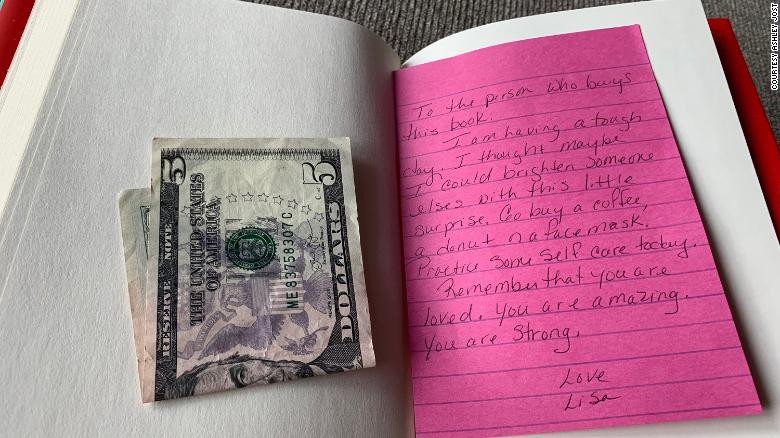 To the person who buys
this book.
I am having a tough
day. I thought maybe
I could brighten someone
elses with this little
surprise. Go buy a coffee,
a donut or a face mask.
Practice some self care today.
Remember that you are
loved. You are amazing.
You are Strong.
Love
Lisa
5
5
RESERVE NOTE
THE UNITED STATES
OF AMERICA
ME83758307C
DOLLARS
COURTESY ASHLEY JOST